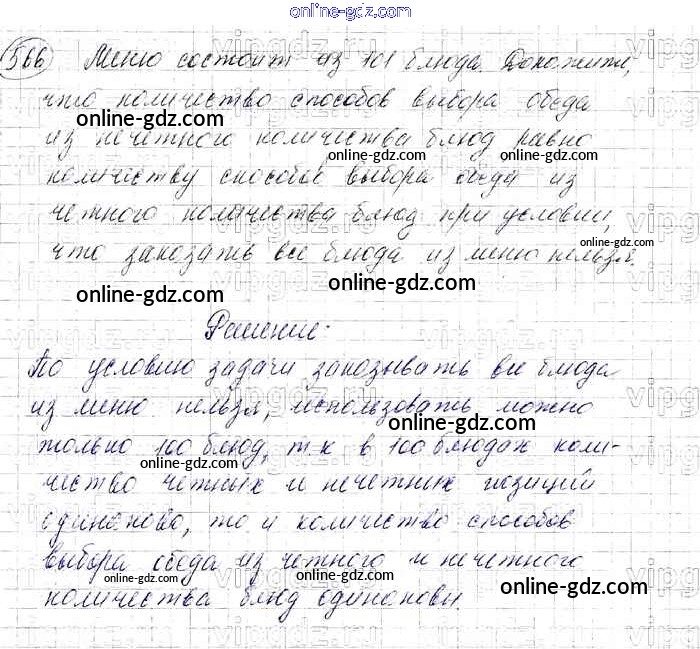 online-gdz.com
566 Меню состоит из 101 блюда. Докажите,
что количество способов выбора обеда
online-gdz.com
из нечетного количества блюд равно
online-gdz.com
количеству способов выбора обеда из
четного количества блюд при условии,
online-gdz.com
online-gdz.com
что заказать все блюда из меню нельзя.
online-gdz.com
online-gdz.com
Решение:
По условию задачи заказывать все блюда
online-gdz.com
из меню нельзя, использовать можно
online-gdz.com
только 100 блюд, т.к в 100 блюдах коли-
online-gdz.com
чество четных и нечетных позиций
online-gdz.com
одинаково, то и количество способов
выбора обеда из четного и нечетного
online-gdz.com
online-gdz.com
количества блюд одинаковы